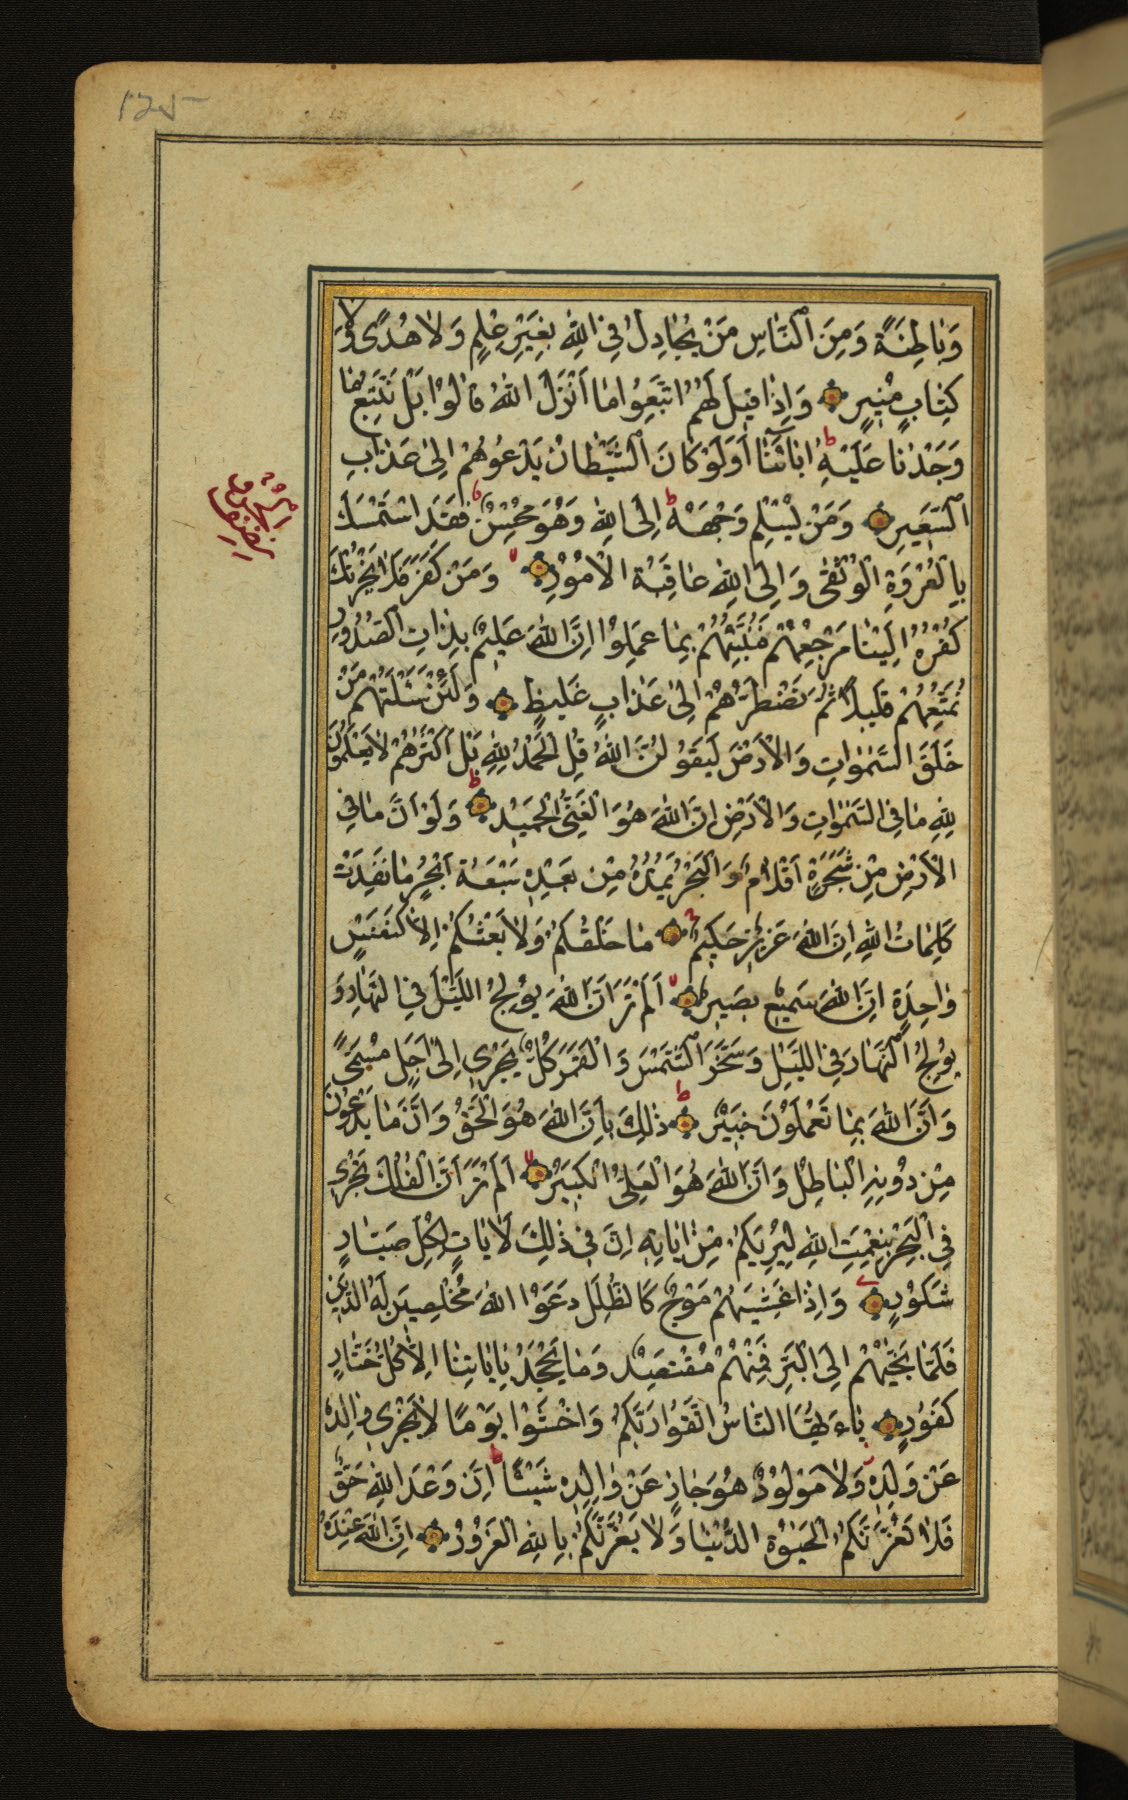 وَبَاطِنَةً وَمِنَ النَّاسِ مَنْ يُجَادِلُ فِي اللّٰهِ بِغَيْرِ عِلْمٍ وَلَا هُدًى وَلَا
كِتَابٍ مُنِيرٍ وَاِذَا قِيلَ لَهُمُ اتَّبِعُوا مَا اَنْزَلَ اللّٰهُ قَالُوا بَلْ نَتَّبِعُ مَا
وَجَدْنَا عَلَيْهِ اٰبَائَنَا اَوَلَوْ كَانَ الشَّيْطَانُ يَدْعُوهُمْ اِلٰى عَذَابِ
السَّعِيرِ وَمَنْ يُسْلِمْ وَجْهَهُ اِلَى اللّٰهِ وَهُوَ مُحْسِنٌ فَقَدِ اسْتَمْسَكَ
بِالْعُرْوَةِ الْوُثْقٰى وَاِلَى اللّٰهِ عَاقِبَةُ الْاُمُورِ وَمَنْ كَفَرَ فَلَا يَحْزُنْكَ
كُفْرُهُ اِلَيْنَا مَرْجِعُهُمْ فَنُنَبِّئُهُمْ بِمَا عَمِلُوا اِنَّ اللّٰهَ عَلِيمٌ بِذَاتِ الصُّدُورِ
نُمَتِّعُهُمْ قَلِيلًا ثُمَّ نَضْطَرُّهُمْ اِلٰى عَذَابٍ غَلِيظٍ وَلَئِنْ سَئَلْتَهُمْ مَنْ
خَلَقَ السَّمٰوَاتِ وَالْاَرْضَ لَيَقُولُنَّ اللّٰهُ قُلِ الْحَمْدُ لِلّٰهِ بَلْ اَكْثَرُهُمْ لَا يَعْلَمُونَ
لِلّٰهِ مَا فِي السَّمٰوَاتِ وَالْاَرْضِ اِنَّ اللّٰهَ هُوَ الْغَنِيُّ الْحَمِيدُ وَلَوْ اَنَّ مَا فِي
الْاَرْضِ مِنْ شَجَرَةٍ اَقْلَامٌ وَالْبَحْرُ يَمُدُّهُ مِنْ بَعْدِهِ سَبْعَةُ اَبْحُرٍ مَا نَفِدَتْ
كَلِمَاتُ اللّٰهِ اِنَّ اللّٰهَ عَزِيزٌ حَكِيمٌ مَا خَلْقُكُمْ وَلَا بَعْثُكُمْ اِلَّا كَنَفْسٍ
وَاحِدَةٍ اِنَّ اللّٰهَ سَمِيعٌ بَصِيرٌ اَلَمْ تَرَ اَنَّ اللّٰهَ يُولِجُ اللَّيْلَ فِي النَّهَارِ وَ
يُولِجُ النَّهَارَ فِي اللَّيْلِ وَسَخَّرَ الشَّمْسَ وَالْقَمَرَ كُلٌّ يَجْرِي اِلٰى اَجَلٍ مُسَمًّى
وَاَنَّ اللّٰهَ بِمَا تَعْمَلُونَ خَبِيرٌ ذٰلِكَ بِاَنَّ اللّٰهَ هُوَ الْحَقُّ وَاَنَّ مَا يَدْعُونَ
مِنْ دُونِهِ الْبَاطِلُ وَاَنَّ اللّٰهَ هُوَ الْعَلِيُّ الْكَبِيرُ اَلَمْ تَرَ اَنَّ الْفُلْكَ تَجْرِي
فِي الْبَحْرِ بِنِعْمَتِ اللّٰهِ لِيُرِيَكُمْ مِنْ اٰيَاتِهِ اِنَّ فِي ذٰلِكَ لَاٰيَاتٍ لِكُلِّ صَبَّارٍ
شَكُورٍ وَاِذَا غَشِيَهُمْ مَوْجٌ كَالظُّلَلِ دَعَوُا اللّٰهَ مُخْلِصِينَ لَهُ الدِّينَ
فَلَمَّا نَجّٰيهُمْ اِلَى الْبَرِّ فَمِنْهُمْ مُقْتَصِدٌ وَمَا يَجْحَدُ بِاٰيَاتِنَا اِلَّا كُلُّ خَتَّارٍ
كَفُورٍ يَاءَيُّهَا النَّاسُ اتَّقُوا رَبَّكُمْ وَاخْشَوْا يَوْمًا لَا يَجْزِي وَالِدٌ
عَنْ وَلَدِهِ وَلَا مَوْلُودٌ هُوَ جَازٍ عَنْ وَالِدِهِ شَيْئًا اِنَّ وَعْدَ اللّٰهِ حَقٌّ
فَلَا تَغُرَّنَّكُمُ الْحَيٰوةُ الدُّنْيَا وَلَا يَغُرَّنَّكُمْ بِاللّٰهِ الْغَرُورُ اِنَّ اللّٰهَ عِنْدَهُ